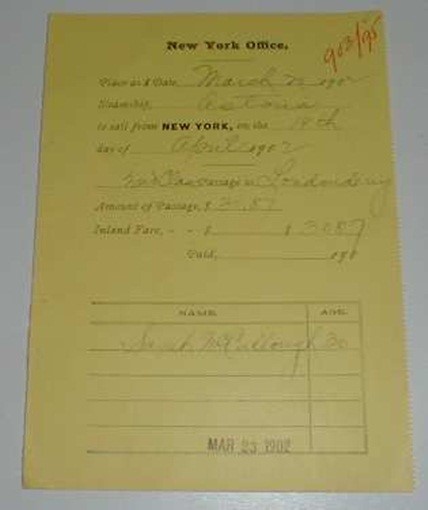 New York Office.
903/95
Place and Date, March 22 190
Steamship, Astoria
to sail from NEW YORK, on the 19th
day of April 1902
Passage to Londonderry
Amount of Passage, $ 30.87
Inland Fare, - - $ $ 3087
Paid, 190
NAME. AGE.
Sarah McCullough 30
MAR 23 1902